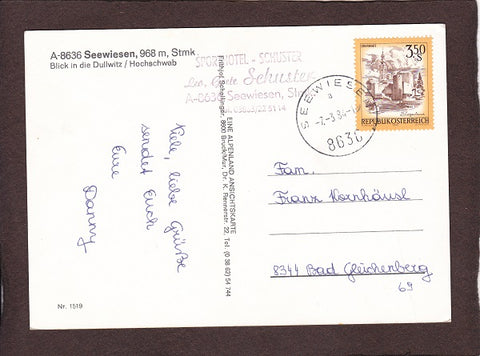 A-8636 Seewiesen, 968 m, Stmk
Blick in die Dullwitz / Hochschwab
SPORTHOTEL - SCHUSTER
Schuster
A-8636 Seewiesen, Stmk
EINE ALPENLAND ANSICHTSKARTE
8600 Bruck/Mur, Dr. K. Rennerstr. 22, Tel. (0 38 62) 54 744
3,50
S
REPUBLIK ÖSTERREICH
SEEWIESEN
8636
Viele, liebe Grüße
sendet Euch
Eure
Danny
Fam.
Franz Kornhäusl
8344 Bad Gleichenberg
69
Nr. 1519